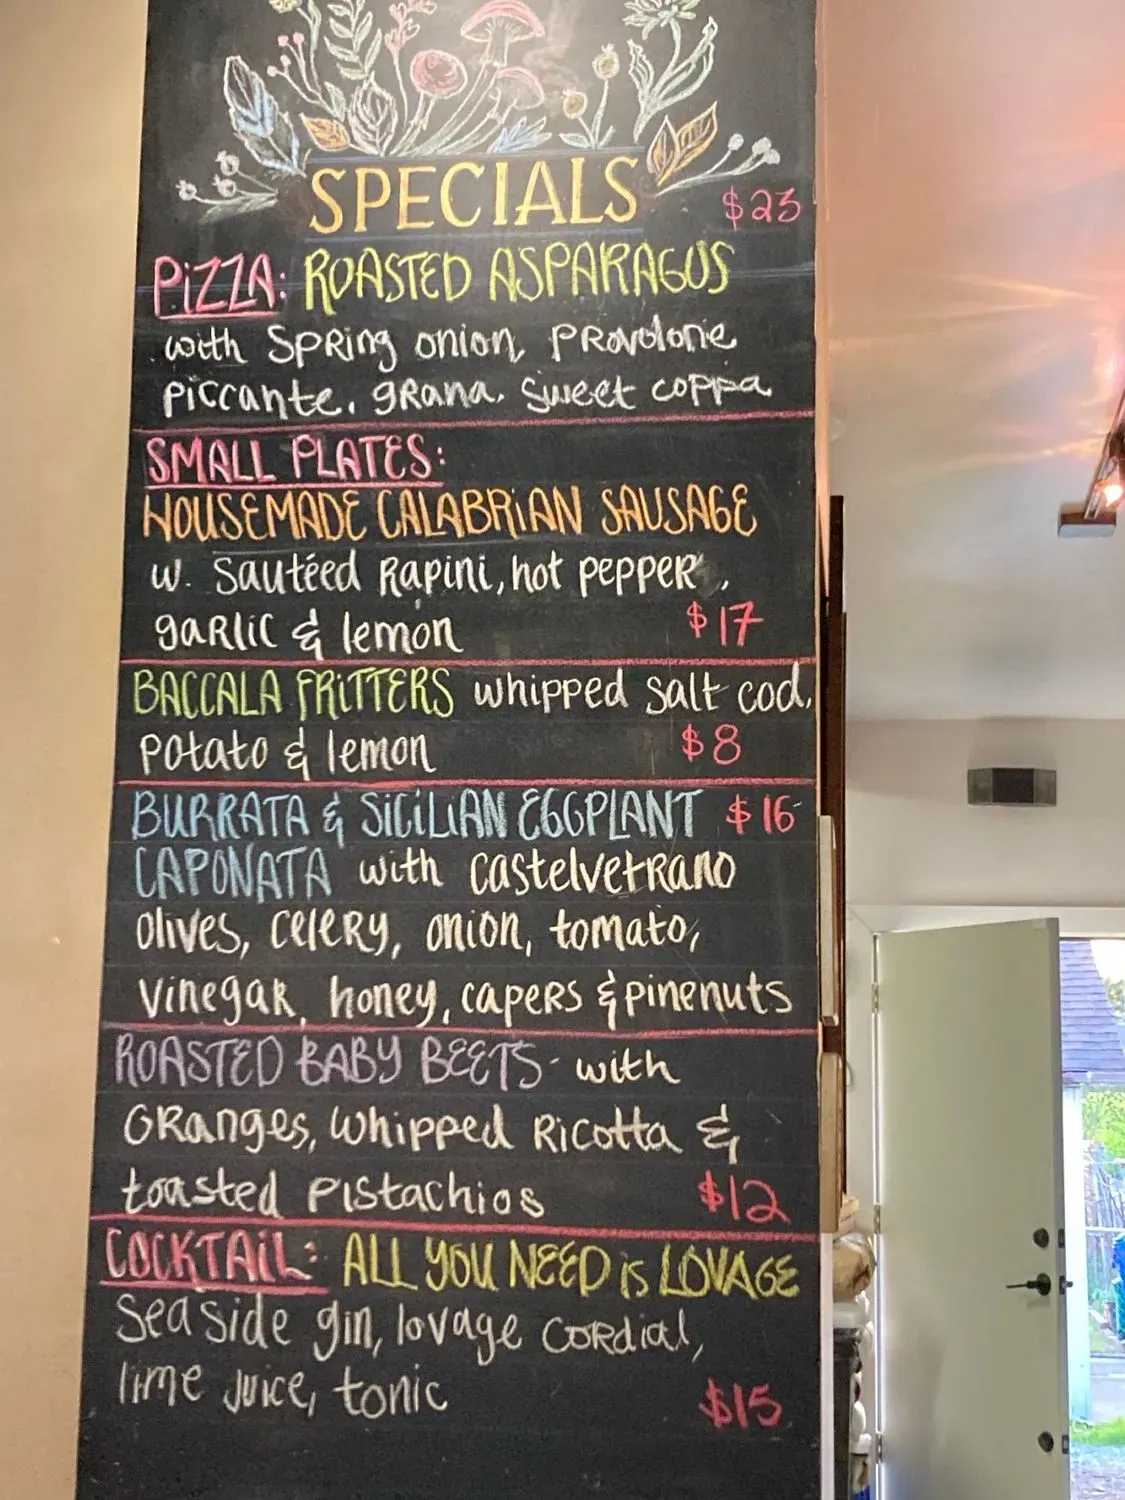 SPECIALS
$23
PIZZA: ROASTED ASPARAGUS
with SPRing onion, PROVolone
PICCante, gRana, Sweet coppa
SMALL PLATES:
HOUSEMADE CALABRiAN SAUSAGE
w. Sautéed Rapini, hot pepper,
gaRlic & lemon $17
BACCALA FRiTTERS whipped salt cod,
Potato & lemon $8
BURRATA & SiCiLiAN EGGPLANT $16
CAPONATA with castelvetRano
olives, CeleRy, onion, tomato,
Vinegar, honey, capeRs & pinenuts
ROASTED BABY BEETS - with
ORanges, whipped Ricotta &
toasted Pistachios $12
COCKTAiL: ALL YOU NEED iS LOVAGE
Seaside gin, lovage CORdial,
lime Juice, tonic
$15